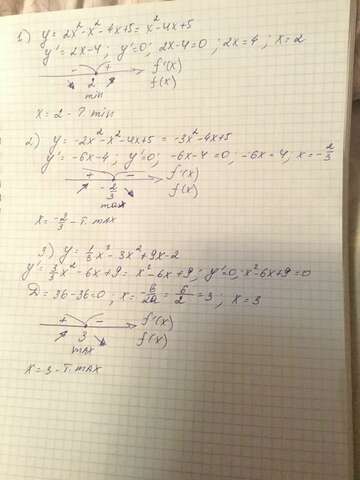 1) y = 2x² - x² - 4x+5 = x² - 4x+5
y' = 2x-4 ; y'=0; 2x-4=0 ; 2x=4 ; x=2
- + f'(x)
2 f(x)
min
x = 2 - т. min
2) y = -2x² - x² - 4x+5 = -3x² - 4x+5
y' = -6x-4 ; y'=0; -6x-4=0; -6x=4; x=-2/3
+ - f'(x)
-2/3 f(x)
max
x = -2/3 - т. max
3) y = 1/3 x³ - 3x² + 9x - 2
y' = 3/3 x² - 6x + 9 = x² - 6x + 9; y'=0 x² - 6x + 9 = 0
D = 36-36=0; x = -b/2a = 6/2 = 3 ; x=3
+ - f'(x)
3 f(x)
max
x = 3 - т. max